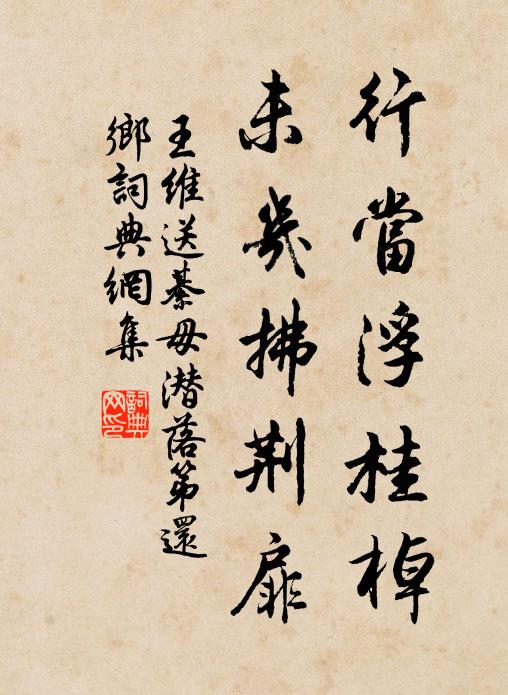 行當浮桂棹
未幾拂荆扉
王維送綦毋潛落第還
鄉詞典網集
詞典
网印